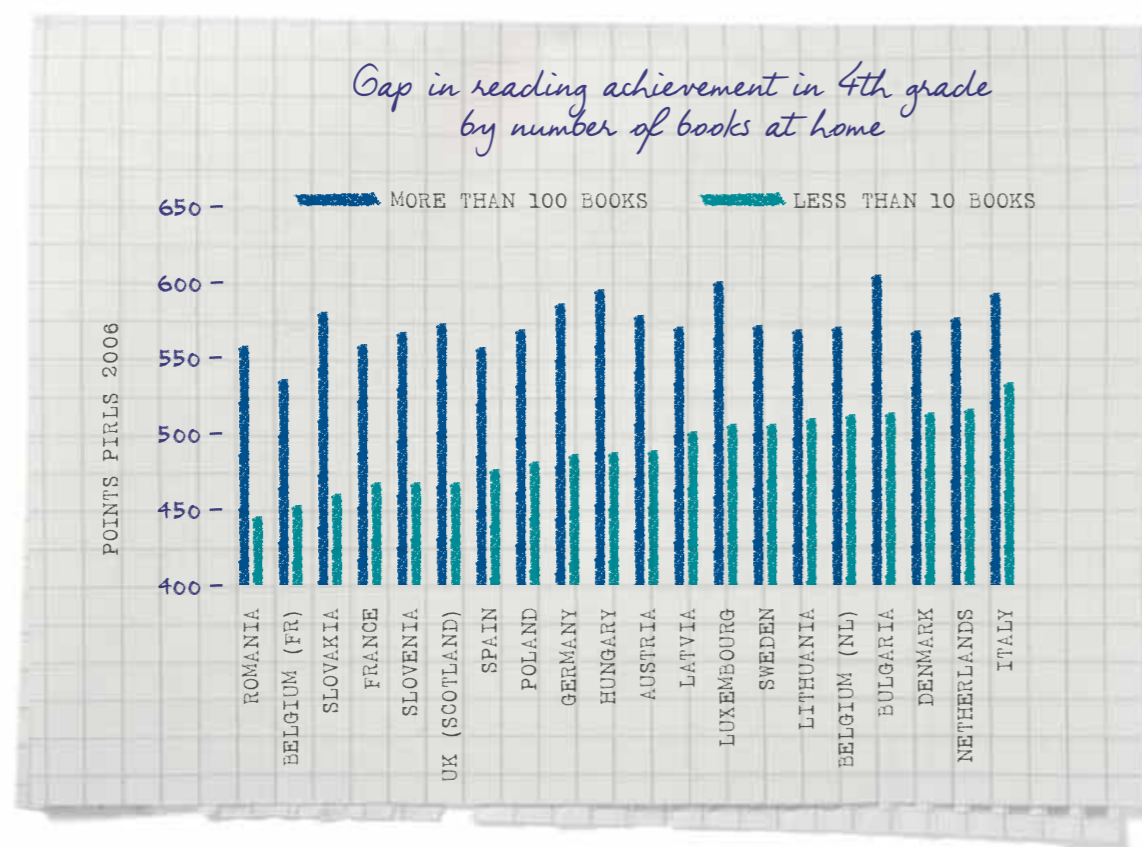 Gap in reading achievement in 4th grade
by number of books at home
MORE THAN 100 BOOKS
LESS THAN 10 BOOKS
POINTS PIRLS 2006
650
600
550
500
450
400
ROMANIA
BELGIUM (FR)
SLOVAKIA
FRANCE
SLOVENIA
UK (SCOTLAND)
SPAIN
POLAND
GERMANY
HUNGARY
AUSTRIA
LATVIA
LUXEMBOURG
SWEDEN
LITHUANIA
BELGIUM (NL)
BULGARIA
DENMARK
NETHERLANDS
ITALY